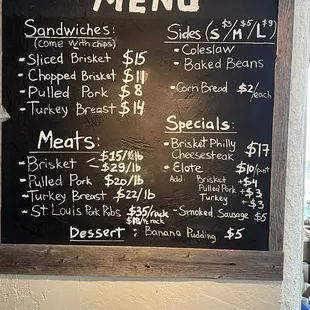 MENU
Sandwiches:
(come with chips)
- Sliced Brisket $15
- Chopped Brisket $11
- Pulled Pork $8
- Turkey Breast $14
Sides (S $3/M $5/L $9)
- Coleslaw
- Baked Beans
- Corn Bread $2/each
Meats:
- Brisket < $15/½lb
$29/lb
- Pulled Pork $20/lb
- Turkey Breast $22/lb
- St Louis Pork Ribs $35/rack
$18/½ rack
Specials:
- Brisket Philly
Cheesesteak $17
- Elote $10/pint
Add: Brisket +$4
Pulled Pork +$3
Turkey +$3
- Smoked Sausage $5
Dessert: Banana Pudding $5